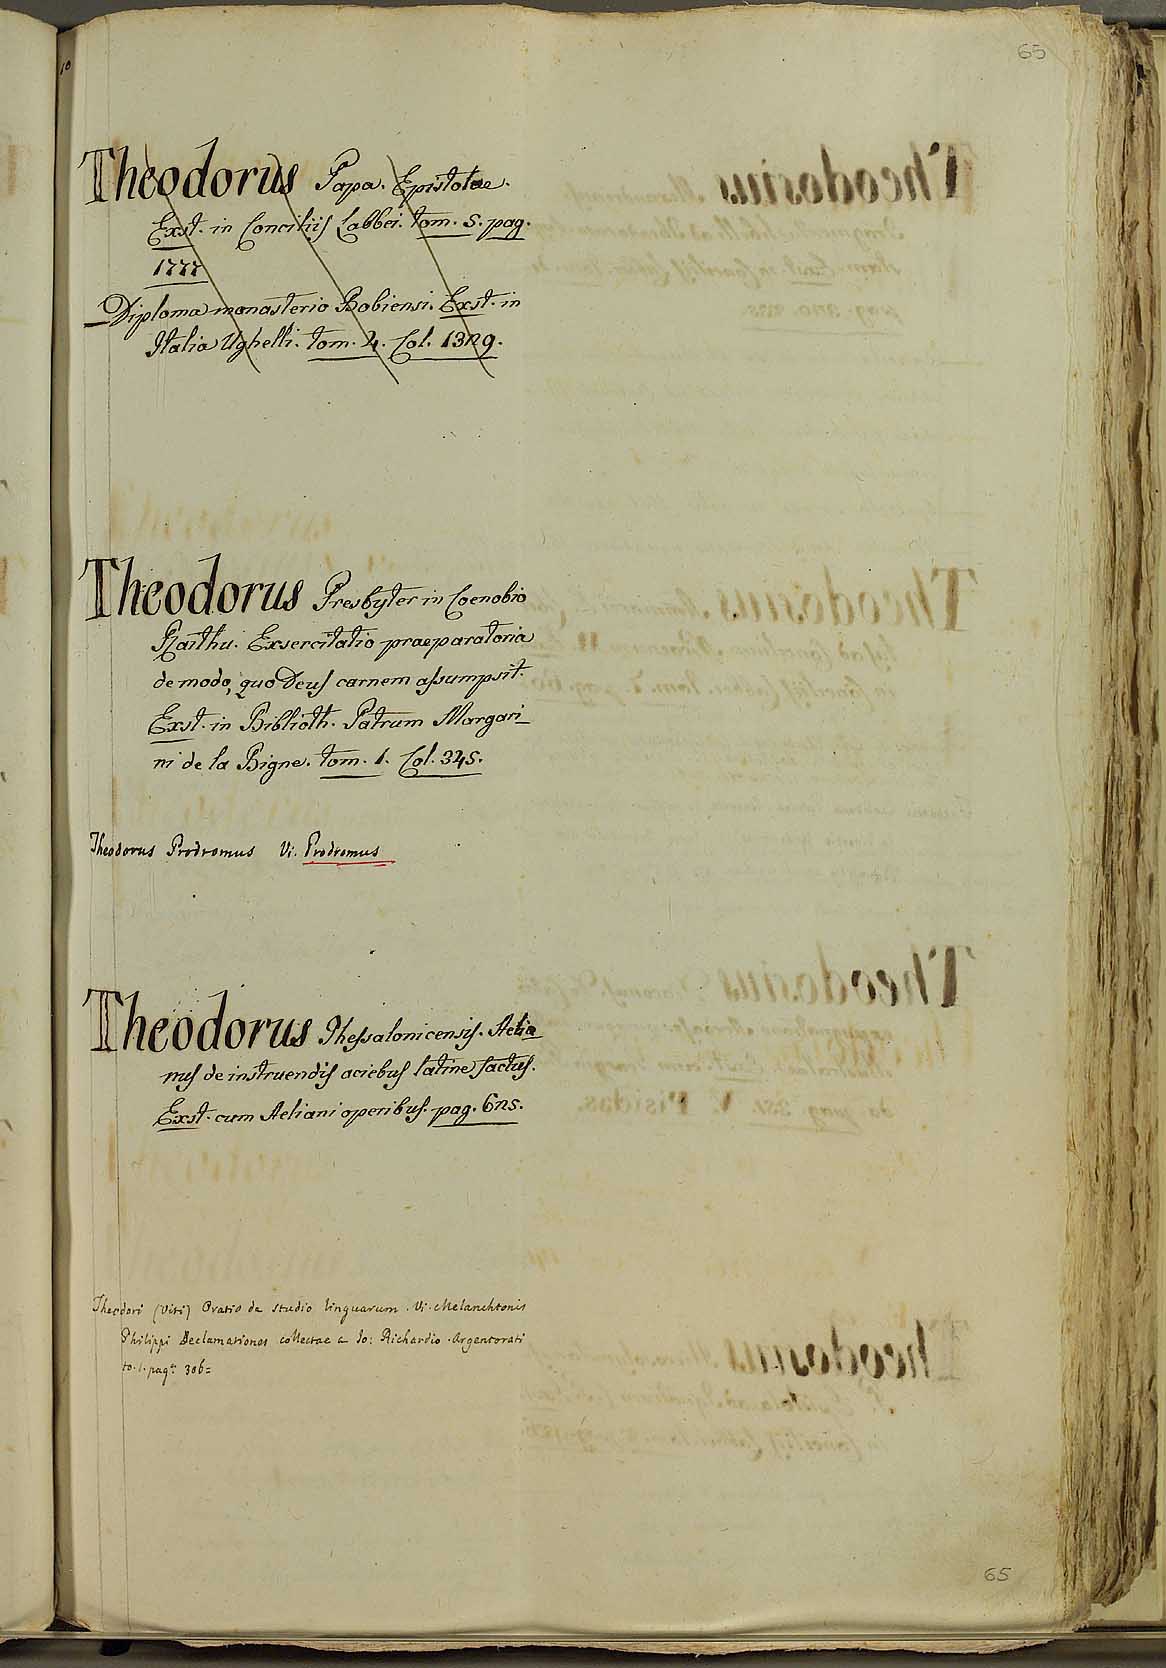 65
Theodorus Papa. Epistolae.
Exst. in Conciliis Labbei. tom. 5. pag.
1777
Diploma monasterio Bobiensi. Exst. in
Italia Ughelli. tom. 4. Col. 1329.
Theodorus Presbyter in Coenobio
Raithu. Exsercitatio praeparatoria
de modo, quo Deus carnem assumpsit.
Exst. in Biblioth. Patrum Margari_
ni de la Bigne. tom. 1. Col. 345.
Theodorus Prodromus Vi. Prodromus
Theodorus Thessalonicensis. Aelia_
nus de instruendis aciebus latine factus.
Exst. cum Aeliani operibus. pag. 625.
Theodori (Viti) Oratio de studio linguarum. Vi. Melanchtonis
Philippi Declamationes collectae a Jo: Richardio. Argentorati
to. 1. pag. 306=
65